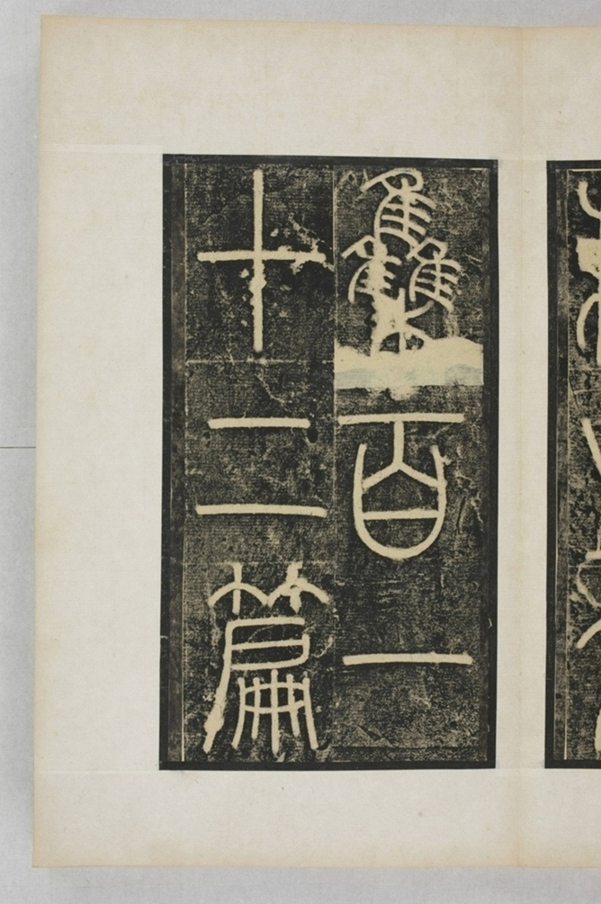 雧百一
十二篇